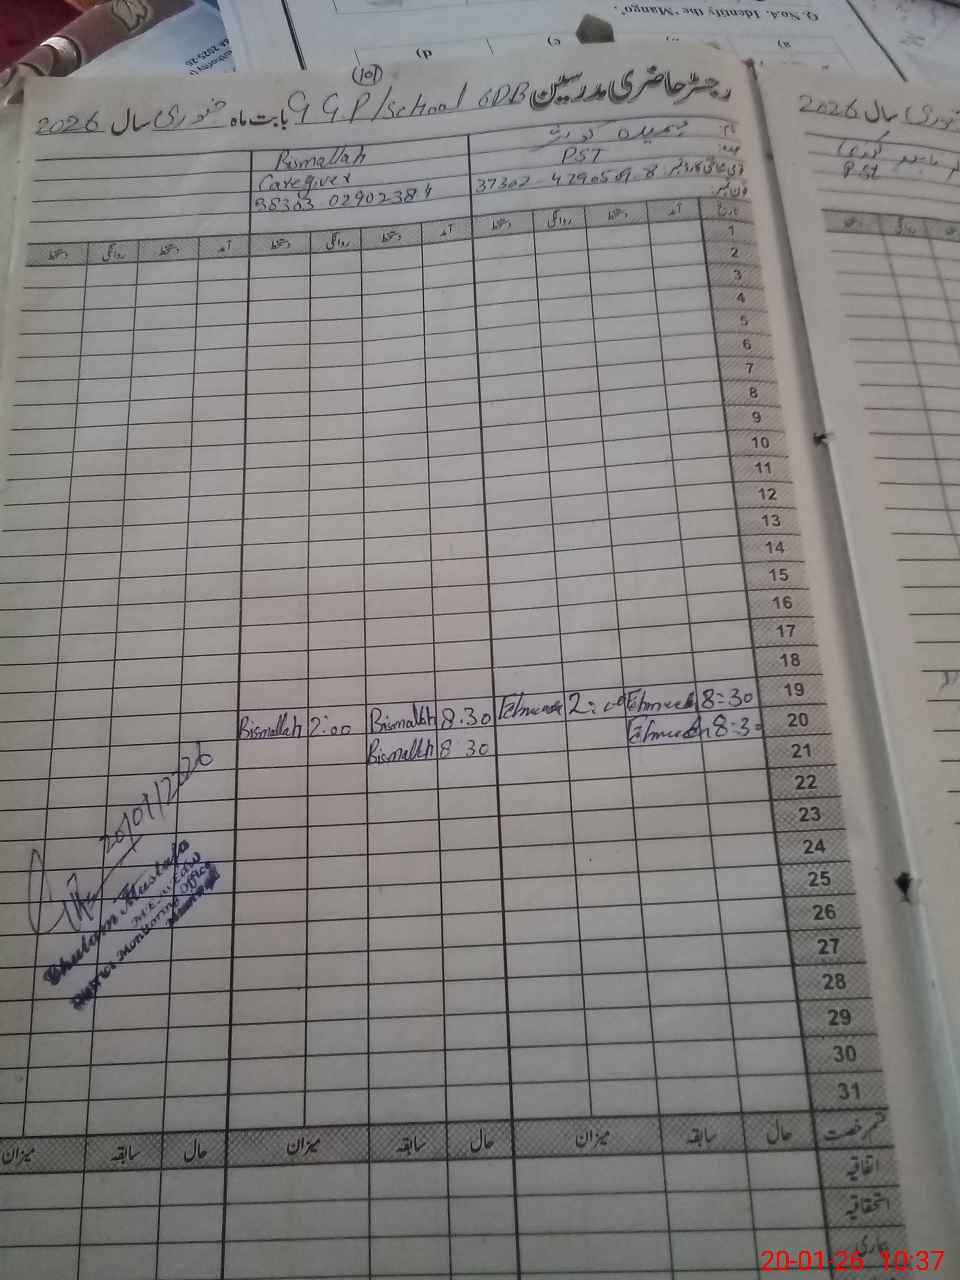 Q.No.4. Identify the 'Mango'.
a)
c)
d)
(101)
رجسٹر حاضری مدرسین 6DB G G P/School بابت ماہ جنوری سال 2026
سال 2026
نام
Bismallah
عہدہ
PST
Caregiver
PST
شناختی کارڈ نمبر 37302-4790501-8
38303 0290238 4
فون نمبر
تاریخ آمد دستخط روانگی دستخط آمد دستخط روانگی دستخط آمد دستخط روانگی دستخط
1
2
3
4
5
6
7
8
9
10
11
12
13
14
15
16
17
18
19 8:30 2:00 8.30 Bismallah 2:00 Bismallah
20 8:30 8 30 Bismallah
21
22
23
24
25
26
27
28
29
30
31
20/01/2026
Ghulam Mustafa
قسم رخصت حال سابقہ میزان حال سابقہ میزان حال سابقہ میزان
اتفاقیہ
استحقاقیہ
بیماری
20-01-26 10:37